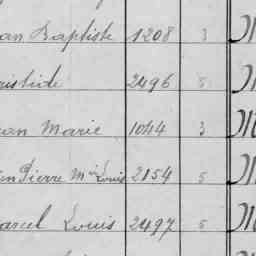 an Baptiste 1208 3 M
ristide 2496 5
ean Marie 1044 3 M
an Pierre Mie Louis 2154 5 M
arcel Louis 2497 5 M